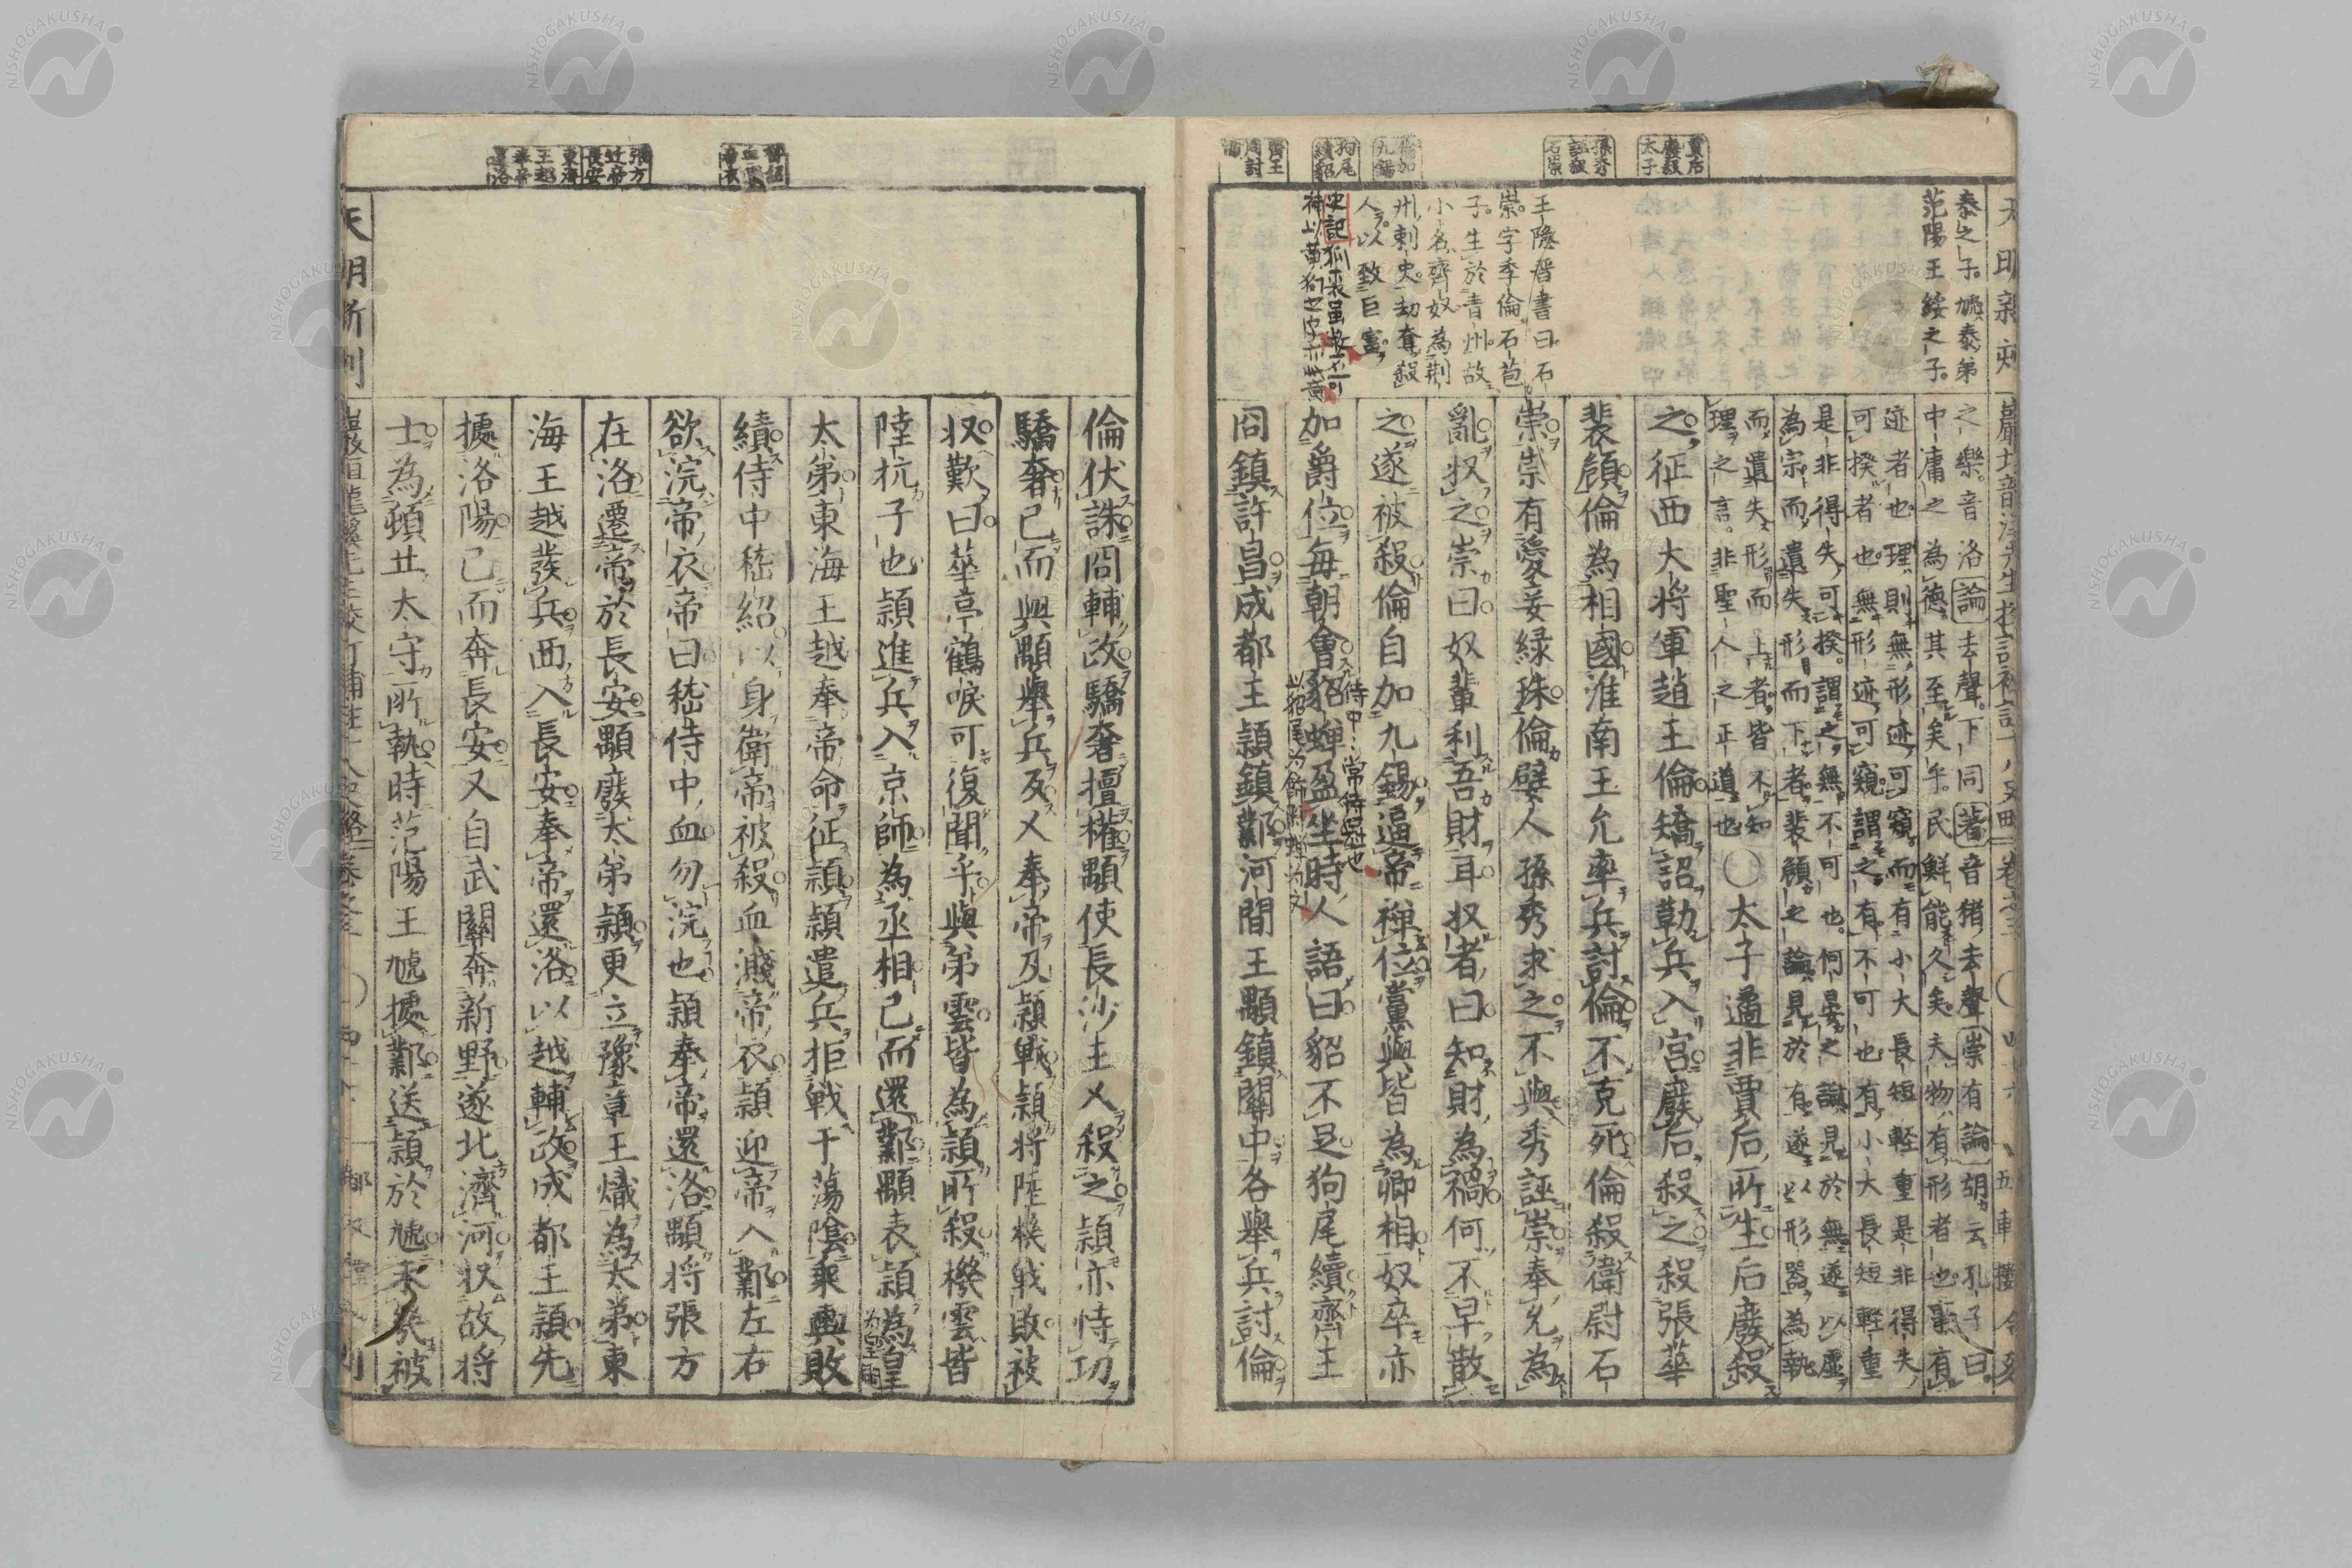 賈后
廢殺
太子
孫秀
誣殺
石崇
倫加
九錫
狗尾
續貂
齊王
冏討
倫
泰之子。虓泰弟
范陽王綏之子。
王隱晉書曰石
崇字季倫。石苞
子。生於青州。故
小名齊奴。為荊
州刺史。劫奪殺
人。以致巨富。
之樂。音洛論去聲。下同著音猪。去聲崇有論胡云。孔子曰。
中庸之為德。其至矣乎。民鮮能久矣。夫物有形者也。毫有
迹者也。理則無形迹可窺。而有小大長短輕重是非得失
可揆者也。無形迹可窺。謂之有不可也。有小大長短輕重
是非得失可揆。謂之無不可也。何晏之論。見於無。遂以虛
為宗。而遺失形而下者。裴頠之論。見於有。遂以形器為執
而遺失形而上者。皆不知
理之言。非聖人之正道也〇太子遹非賈后所生后廢殺
之征西大將軍趙王倫矯詔勒兵入宮廢后殺之殺張華
裴頠倫為相國淮南王允率兵討倫不克死倫殺衛尉石
崇崇有愛妾綠珠倫嬖人孫秀求之不與秀誣崇奉允為
亂收之崇曰奴輩利吾財耳收者曰知財為禍何不早散
之遂被殺倫自加九錫逼帝禪位黨與皆為卿相奴卒亦
加爵位每朝會貂蟬盈坐時人語曰貂不足狗尾續齊王
冏鎮許昌成都王頴鎮鄴河間王顒鎮關中各舉兵討倫
嵇紹
血濺
帝衣
張方
辻帝
長安
東海
王越
奉帝
還洛
倫伏誅冏輔政驕奢擅權顒使長沙王乂殺之頴亦恃功
驕奢已而與顒舉兵反乂奉帝及頴戰頴將陸機戰敗被
収歎曰華亭鶴唳可復聞乎與弟雲皆為頴所殺機雲皆
陸抗子也頴進兵入京師為丞相已而還鄴顒表頴為皇
太弟東海王越奉帝命征頴頴遣兵拒戰于蕩陰乘輿敗
績侍中嵇紹以身衛帝被殺血濺帝衣頴迎帝入鄴左右
欲浣帝衣帝曰嵇侍中血勿浣也頴奉帝還洛顒將張方
在洛遷帝於長安顒廢太弟頴更立豫章王熾為太弟東
海王越發兵西入長安奉帝還洛以越輔政成都王頴先
據洛陽已而奔長安又自武關奔新野遂北濟河収故將
士為頓丘太守所執時范陽王虓據鄴送頴於虓未幾被